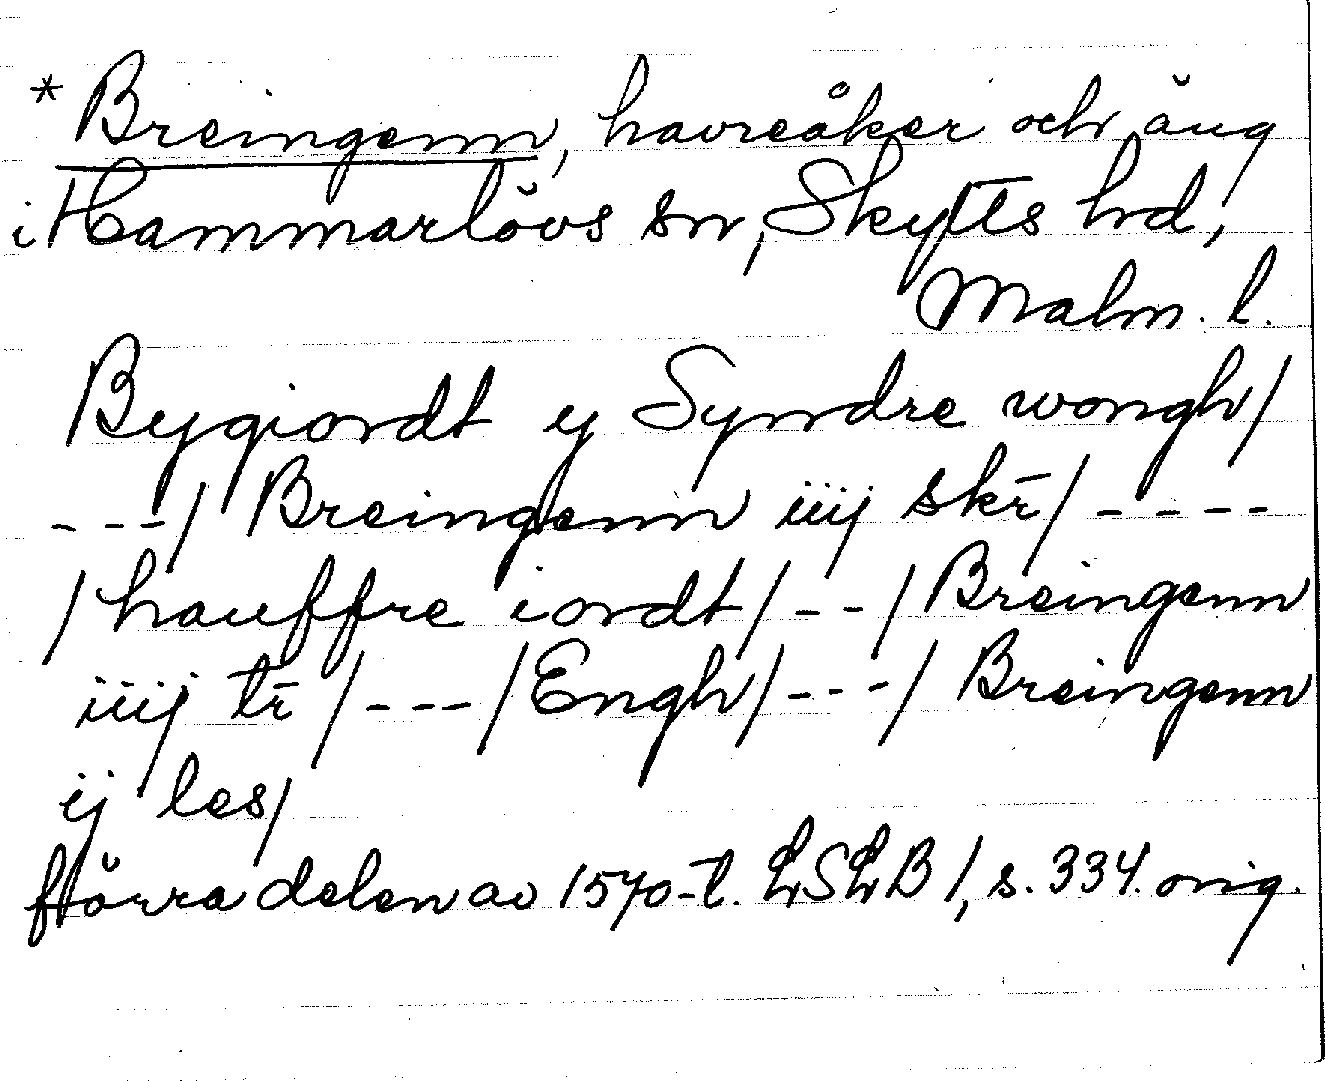 * Breingenn, havreåker och äng
i Hammarlövs sn, Skytts hd,
Malm. l.
Bygiordt y Syndre wongh/
---/ Breingenn iiij skr̄/ ----
/hauffre iordt/--/Breingenn
iiij tr̄ /---/Engh/---/ Breingenn
ij les/
förra delen av 1570-t. LSLB 1, s. 334. orig.